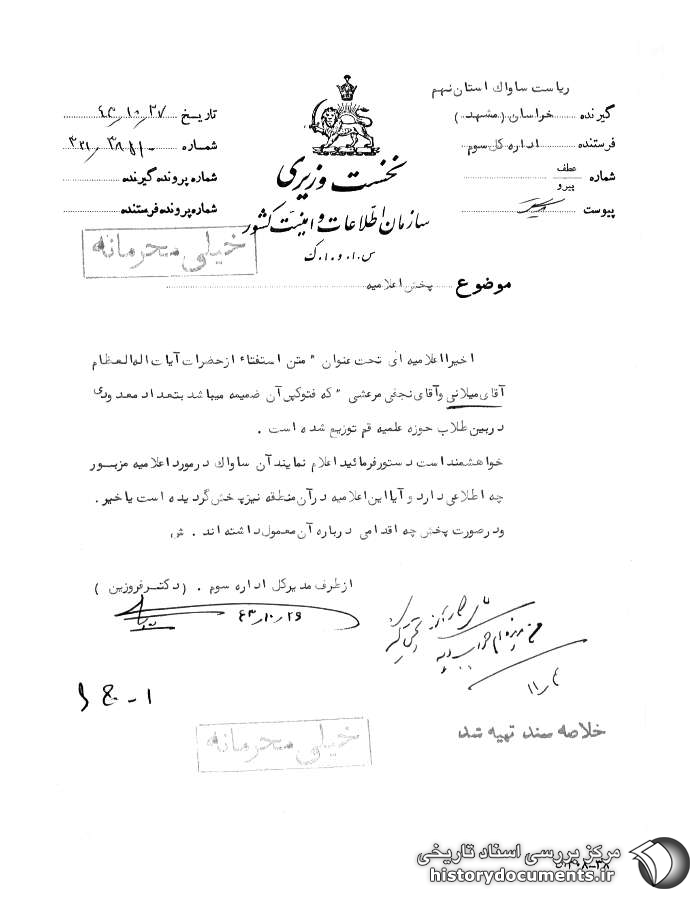 ریاست ساواك استان نهم
گیرنده خراسان (مشهد)
فرستنده اداره کل سوم
شماره عطف پیرو
پیوست
تاریخ ۴۳/۱۰/۲۷
شماره
شماره پرونده گیرنده
شماره پرونده فرستنده
نخست وزیری
سازمان اطلاعات و امنیت کشور
س.ا.و.ا.ک
خیلی محرمانه
موضوع پخش اعلامیه
اخیرا اعلامیه ای تحت عنوان " متن استفتاء از حضرات آیات اله العظام
آقای میلانی و آقای نجفی مرعشی " که فتوکپی آن ضمیمه میباشد بتعداد معدودی
در بین طلاب حوزه علمیه قم توزیع شده است .
خواهشمند است دستور فرمائید اعلام نمایند آن ساواك در مورد اعلامیه مزبور
چه اطلاعی دارد و آیا این اعلامیه در آن منطقه نیز پخش گردیده است یا خیر .
و در صورت پخش چه اقدامی درباره آن معمول داشته اند . ش
از طرف مدیر کل اداره سوم . (دکتر فروزین )
۴۳/۱۰/۲۶
۱۱/۴
خیلی محرمانه
خلاصه سند تهیه شد
مرکز بررسی اسناد تاریخی
historydocuments.ir